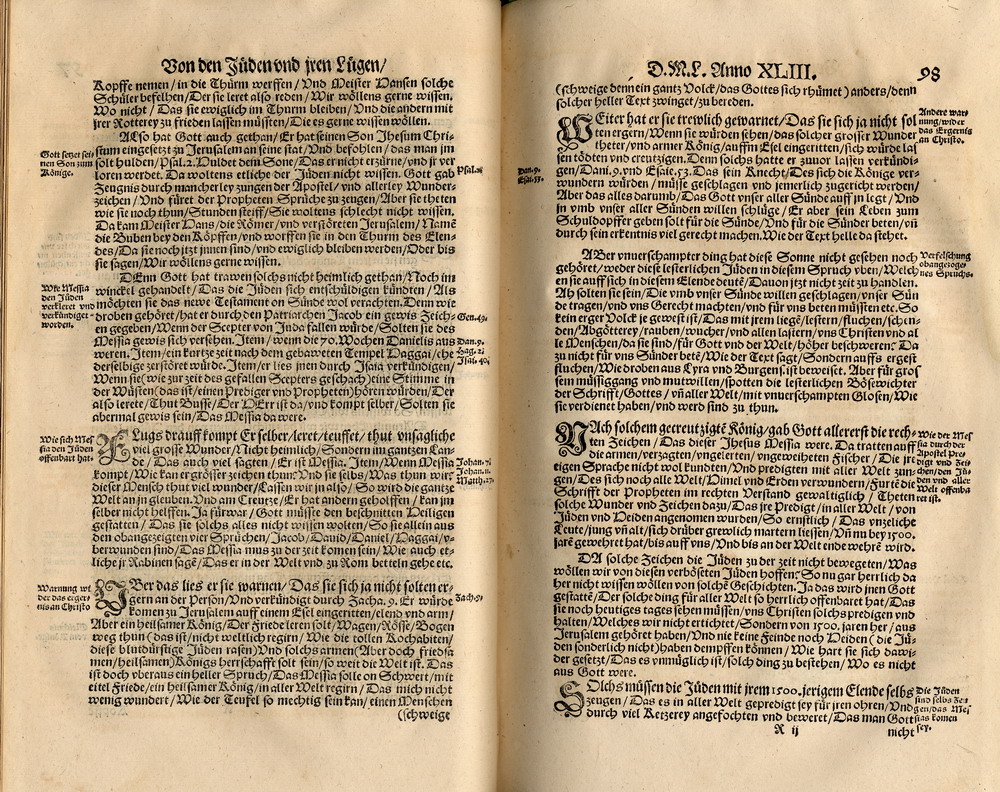 Von den Jüden vnd jren Lügen/
Kopffe nemen/in die Thürm werffen/Vnd Meister Hansen solche
Schüler befelhen/Der sie leret also reden/Wir wöllens gerne wissen.
Wo nicht/Das sie ewiglich im Thurm bleiben/Vnd die andern mit
jrer Rotterey zu frieden lassen müssen/Die es gerne wissen wöllen.
Also hat Gott auch gethan/Er hat seinen Son Jhesum Chri-
stum eingesetzt zu Jerusalem an seine stat/Vnd befohlen/das man jm
solt hulden/Psal.2. Huldet dem Sone/Das er nicht erzürne/vnd jr ver
loren werdet. Da woltens etliche der Jüden nicht wissen. Gott gab
Zeugnis durch mancherley zungen der Apostel/vnd allerley Wunder-
zeichen/Vnd füret der Propheten Sprüche zu zeugen/Aber sie theten
wie sie noch thun/Stunden steiff/Sie woltens schlecht nicht wissen.
Da kam Meister Hans/die Römer/vnd verstöreten Jerusalem/Namē
die Buben bey den Köpffen/vnd worffen sie in den Thurn des Elen-
des/Da sie noch jtzt jnnen sind/vnd ewiglich bleiben werden/Oder bis
sie sagen/Wir wöllens gerne wissen.
Gott setzet sei-
nen Son zum
Könige.
Psal.2.
DEnn Gott hat trawen solchs nicht heimlich gethan/Noch im
winckel gehandelt/Das die Jüden sich entschüldigen kündten/Als
möchten sie das newe Testament on Sünde wol verachten. Denn wie
droben gehöret/hat er durch den Patriarchen Jacob ein gewis Zeich-
en gegeben/Wenn der Scepter von Juda fallen würde/Solten sie des
Messia gewis sich versehen. Item/wenn die 70. Wochen Danielis aus
weren. Item/ein kurtze zeit nach dem gebaweten Tempel Haggai/che
derselbige zerstöret würde. Item/er lies jnen durch Isaia verkündigen/
Wenn sie(wie zur zeit des gefallen Scepters geschach)eine Stimme in
der Wüsten(das ist/einen Prediger vnd Propheten)hören würden/Der
also lerete/Thut Busse/Der HErr ist da/vnd kompt selber/Solten sie
abermal gewis sein/Das Messia da were.
Wie Messia
den Jüden
verkleret vnd
verkündiget
worden.
Gen.49.
Dan.9.
Hag.2.
Jsai.40.
FLugs drauff kompt Er selber/leret/teuffet/thut vnsagliche
viel grosse Wunder/Nicht heimlich/Sondern im gantzen Lan-
de/Das auch viel sagten/Er ist Messia. Item/Wenn Messia
kompt/Wie kan er grösser zeichen thun? Vnd sie selbs/Was thun wir?
dieser Mensch thut viel wunder/Lassen wir jn also/So wird die gantze
Welt an jn gleuben. Vnd am Creutze/Er hat andern geholffen/kan jm
selber nicht helffen. Ja fürwar/Gott müsse den beschnitten Heiligen
gestatten/Das sie solchs alles nicht wissen wolten/So sie allein aus
den obangezeigten vier Sprüchen/Jacob/Dauid/Daniel/Haggai/v-
berwunden sind/Das Messia mus zu der zeit komen sein/Wie auch et-
liche jr Rabinen sagē/Das er in der Welt vnd zu Rom betteln gehe etc.
Wie sich Mes
sia den Jüden
offenbart hat.
Johan.7.
Johan.11.
Matth.27.
VBer das lies er sie warnen/Das sie sich ja nicht solten er-
gern an der Person/Vnd verkündigt durch Zacha.9. Er würde
komen zu Jerusalem auff einem Esel eingeritten/elend vnd arm/
Aber ein heilsamer König/Der Friede leren solt/Wagen/Rösse/Bogen
weg thun(das ist/nicht weltlich regirn/Wie die tollen Kochabiten/
diese blutdürstige Jüden rasen)Vnd solchs armen(Aber doch friedsa
men/heilsamen)Königs herrschafft solt sein/so weit die Welt ist. Das
ist doch vberaus ein heller Spruch/Das Messia solle on Schwert/mit
eitel Friede/ein heilsamer König/in aller Welt regirn/Das mich nicht
wenig wundert/Wie der Teufel so mechtig sein kan/einen Menschen
(schweige
Warnung we
der das erger-
nis an Christo
Zach.9.
D.M.L. Anno XLIII.
98
(schweige denn ein gantz Volck/das Gottes sich rhümet)anders/denn
solcher heller Text zwinget/zu bereden.
WEiter hat er sie trewlich gewarnet/Das sie sich ja nicht sol
ten ergern/Wenn sie würden sehen/das solcher grosser Wunder
theter/vnd armer König/auffm Esel eingeritten/sich würde las
sen tödten vnd creutzigen. Denn solchs hatte er zuuor lassen verkündi-
gen/Dani.9.vnd Esaie.53. Das sein Knecht/Des sich die Könige ver-
wundern würden/müsse geschlagen vnd jemerlich zugericht werden/
Aber das alles darumb/Das Gott vnser aller Sünde auff jn legt/Vnd
jn vmb vnser aller Sünden willen schlüge/Er aber sein Leben zum
Schuldopffer geben solt für die Sünde/Vnd für die Sünder beten/vñ
durch sein erkentnis viel gerecht machen. Wie der Text helle da stehet.
Andere war-
nung/wider
das Ergernis
an Christo.
Dan.9.
Esai.53.
ABer vnuerschampter ding hat diese Sonne nicht gesehen noch
gehöret/weder diese lesterlichen Jüden in diesem Spruch vben/Welch
en sie auff sich in diesem Elende deutē/Dauon jtzt nicht zeit zu handlen.
Ah solten sie sein/Die vmb vnser Sünde willen geschlagen/vnser Sün
de tragen/vnd vns Gerecht machten/vnd für vns beten müsten etc. So
kein erger Volck je gewest ist/Das mit jrem liegē/lestern/fluchen/schen-
den/Abgötterey/rauben/wucher/vnd allen lastern/vns Christen vnd al
le Menschen/da sie sind/für Gott vnd der Welt/höher beschweren? Da
zu nicht für vns Sünder betē/Wie der Text sagt/Sondern auffs ergest
fluchen/Wie droben aus Lyra vnd Burgensi.ist beweiset. Aber für gros
sem müssiggang vnd mutwillen/spotten die lesterlichen Bösewichter
der Schrifft/Gottes/vñ aller Welt/mit vnuerschampten Glosen/Wie
sie verdienet haben/vnd werd sind zu thun.
Verfelschung
obangezoge-
nes Spruchs.
NAch solchem gecreutzigtē König/gab Gott allererst die rech-
ten Zeichen/Das dieser Jhesus Messia were. Da tratten auff
die armen/verzagten/vngelerten/vngeweiheten Fischer/Die jre
eigen Sprache nicht wol kundten/Vnd predigten mit aller Welt zun-
gen/Des sich noch alle Welt/Himel vnd Erden verwundern/Furtē die
Schrifft der Propheten im rechten Verstand gewaltiglich/Theten
solche Wunder vnd Zeichen dazu/Das jre Predigt/in aller Welt/von
Jüden vnd Heiden angenomen wurden/So ernstlich/Das vnzeliche
Leute/jung vñ alt/sich drüber grewlich martern liessen/Vñ nu bey 1500.
jarē gewehret hat/bis auff vns/Vnd bis an der Welt ende wehrē wird.
Wie der Mes
sia durch der
Apostel pre-
digt vnd Zei-
chen/den Jü-
den vnd aller
Welt offenba
ret ist.
DA solche Zeichen die Jüden zu der zeit nicht bewegeten/Was
wöllen wir von diesen verböseten Jüden hoffen? So nu gar herrlich da
her nicht wissen wöllen von solchē Geschichten. Ja das wird jnen Gott
gestattē/Der solche ding für aller Welt so herrlich offenbaret hat/Das
sie noch heutiges tages sehen müssen/vns Christen solchs predigen vnd
halten/Welches wir nicht ertichtet/Sondern von 1500.jaren her/aus
Jerusalem gehöret haben/Vnd nie keine Feinde noch Heiden(die Jü-
den sonderlich nicht)haben dempffen können/Wie hart sie sich dawi-
der gesetzt/Das es vnmüglich ist/solch ding zu bestehen/Wo es nicht
aus Gott were.
SOlchs müssen die Jüden mit jrem 1500.jerigem Elende selbs
zeugen/Das es in aller Welt gepredigt sey für jren ohren/Vnd
durch viel Ketzerey angefochten vnd beweret/Das man Gott
R ij
nicht
Die Jüden
sind selbs Zeu-
gen/das Mes
sias komen
sey.